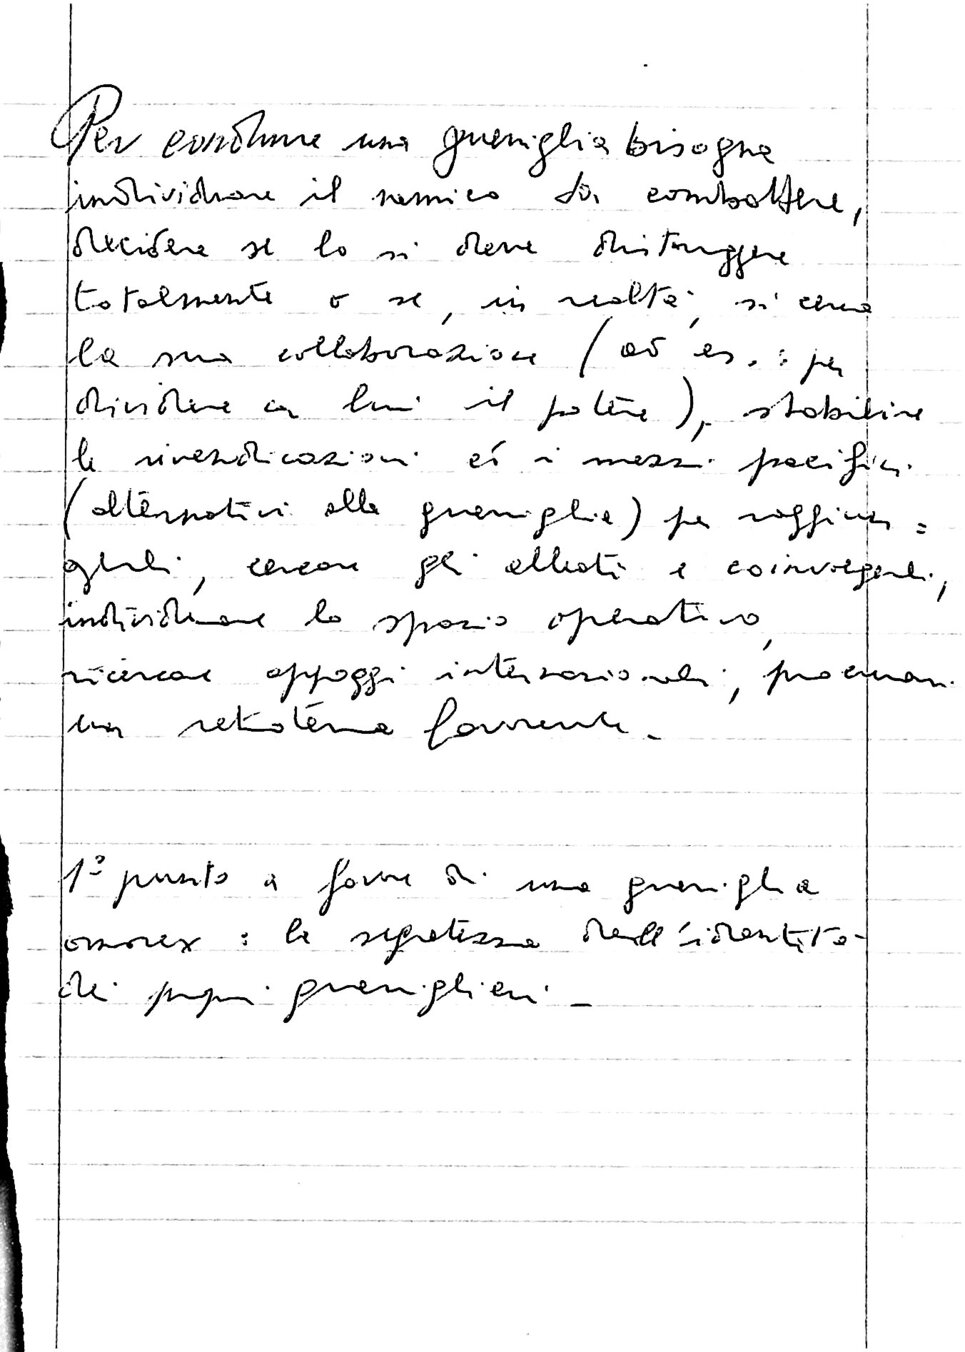 Per condurre una guerriglia bisogna
individuare il nemico da combattere,
decidere se lo si deve distruggere
totalmente o se, in realtà, si cerca
la sua collaborazione (ad es.: per
dividere con lui il potere), stabilire
le rivendicazioni ed i mezzi pacifici
(alternativi alla guerriglia) per raggiun=
gerli, cercare gli alleati e coinvolgerli,
individuare lo spazio operativo,
ricercare appoggi internazionali, procurarsi
un retroterra favorevole.
1° punto a favore di una guerriglia
: la segretezza dell'identità
dei propri guerriglieri.